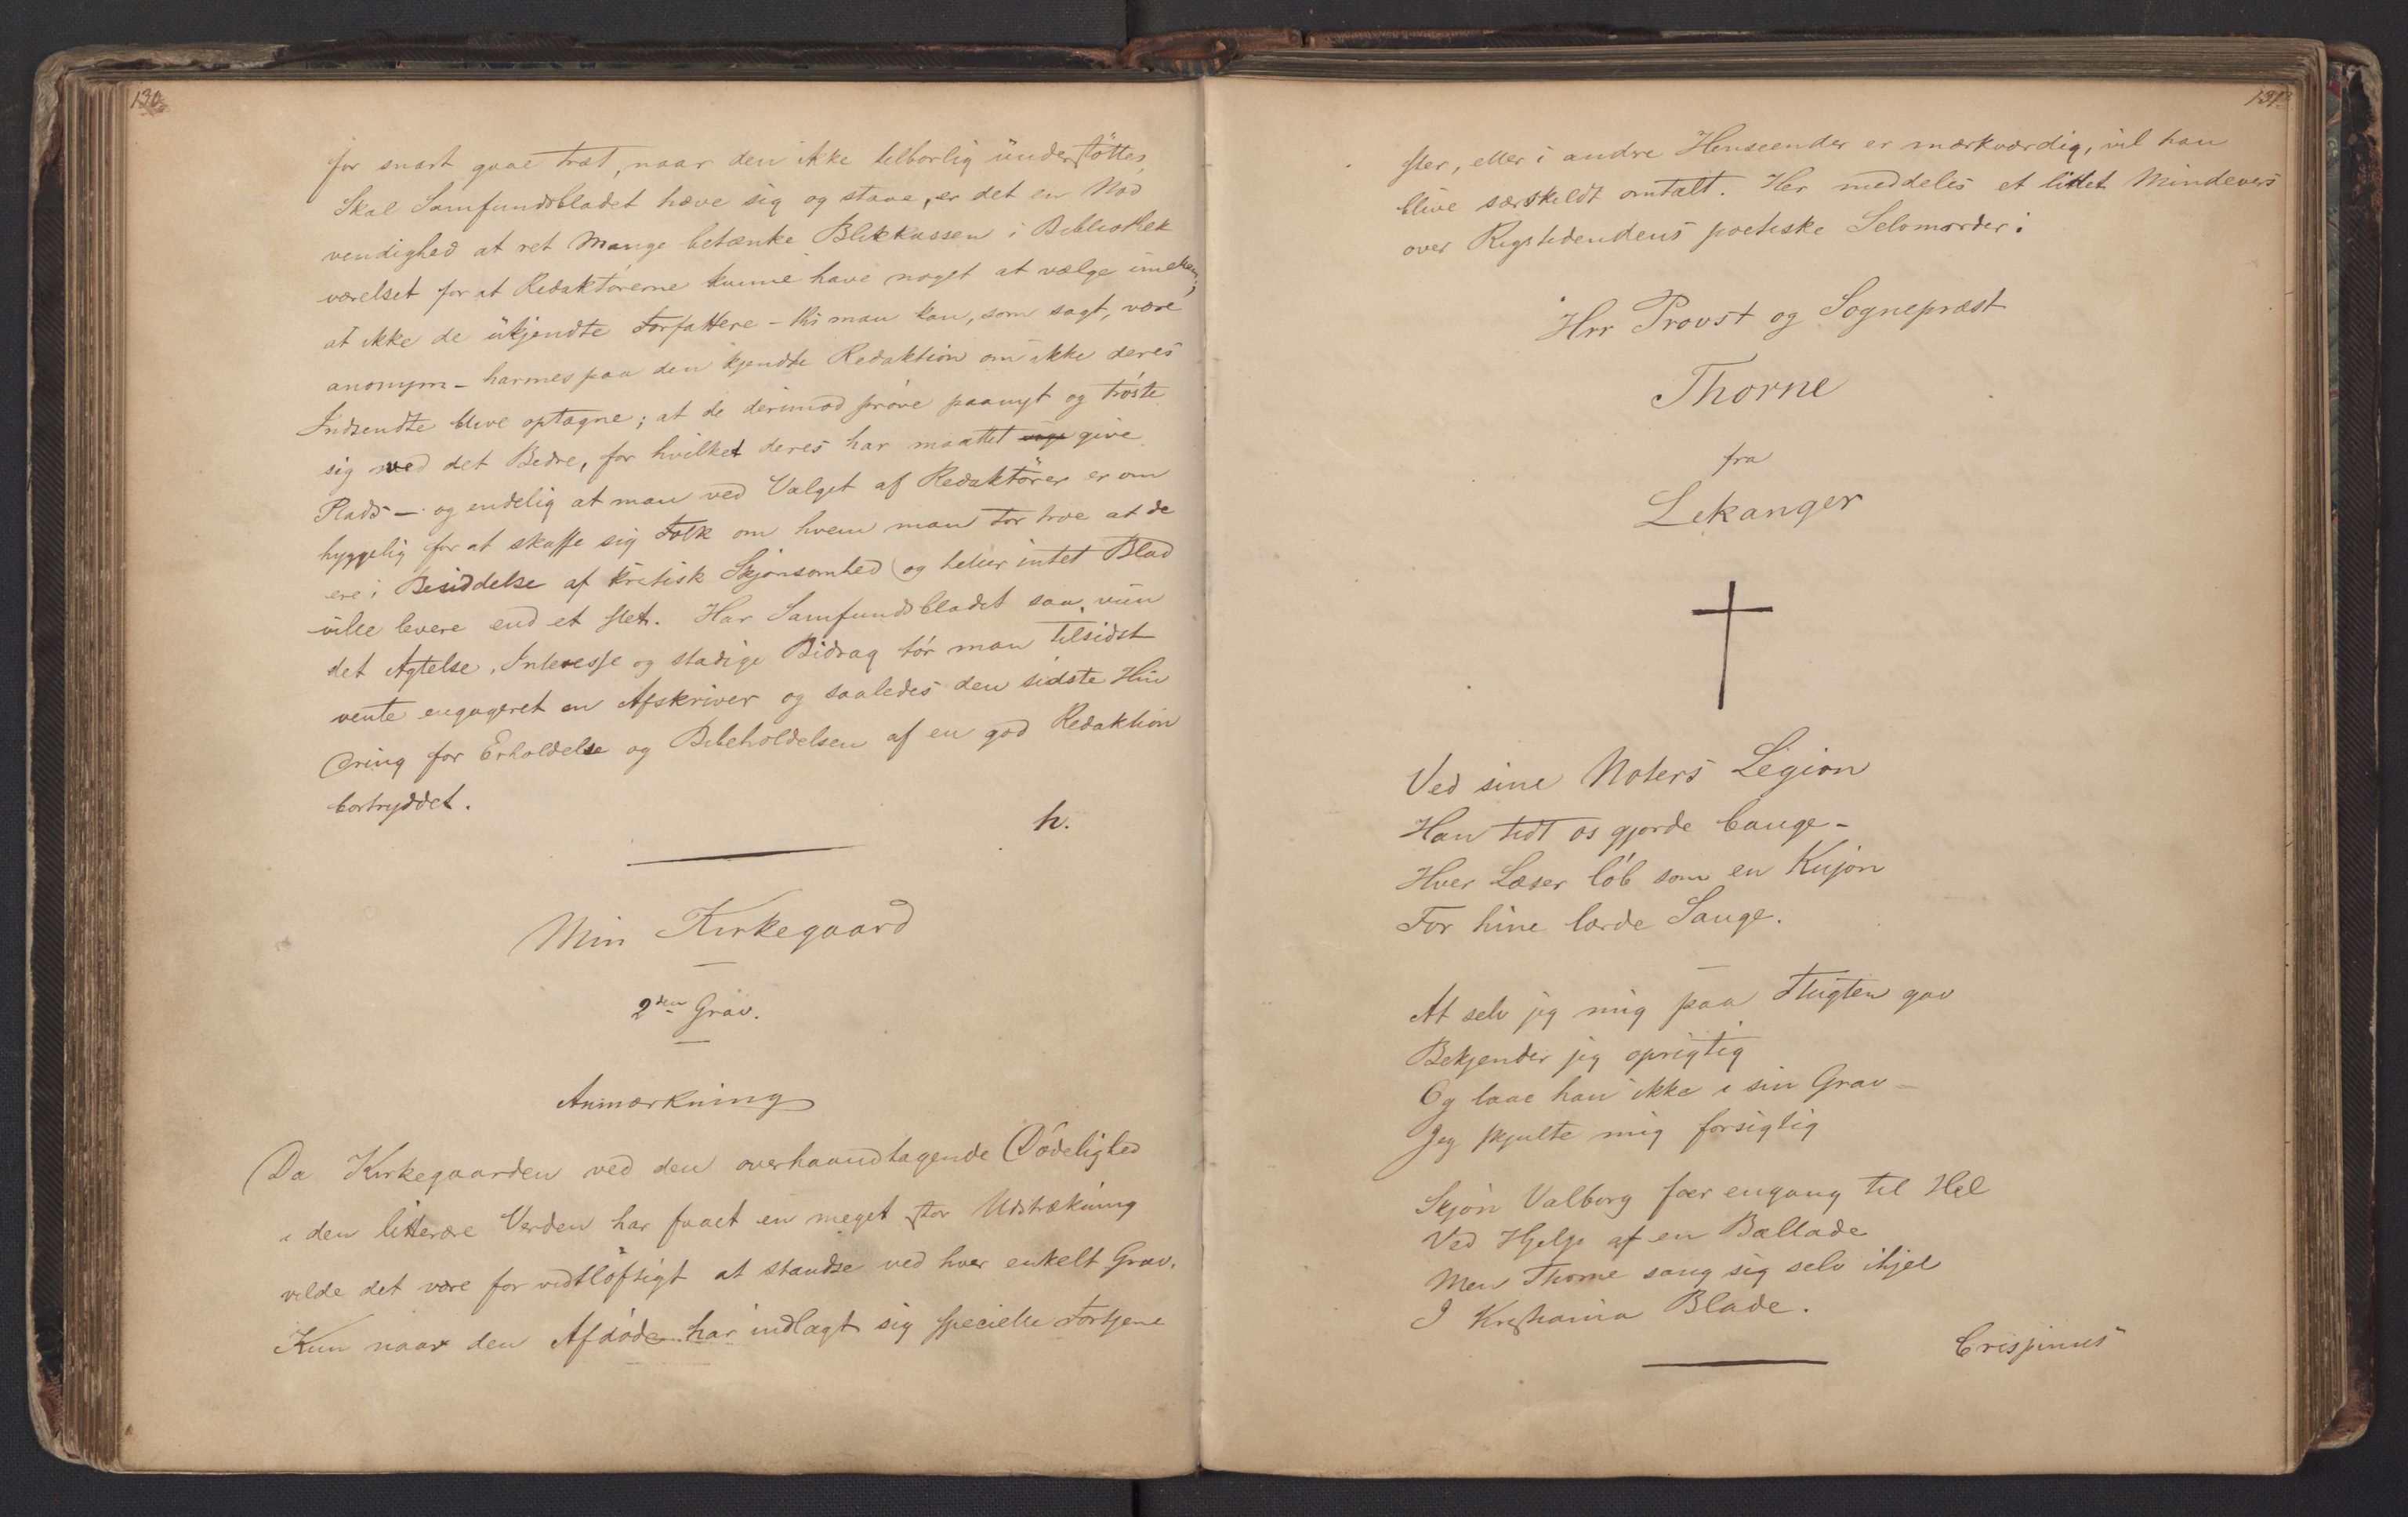 130
for snart gaae træt, naar den ikke tilbørlig understøttes
Skal Samfundsbladet hæve sig og staae, er det en Nød
vendighed at ret Mange betænke Blikkassen i Bibliothek
værelset for at Redaktørerne kunne have noget at vælge imellem;
at ikke de ukjendte Forfattere - thi man kan, som sagt, være
anonym - harmes paa den kjendte Redaktion om ikke deres
Indsendte blive optagne; at de derimod prøve paanyt og trøste
sig ved det Bedre, for hvilket deres har maattet give
Plads - og endelig at man ved Valget af Redaktører er om
hyggelig for at skaffe sig Folk om hvem man tør troe at de
ere i Besiddelse af kritisk Skjønsomhed og heller intet Blad
ville levere end et slet. Har Samfundsbladet saa vun
det Agtelse, Interesse og stadige Bidrag tør man tilsidst
vente engageret en Afskriver og saaledes den sidste Hin
dring for Erholdelse og Bibeholdelsen af en god Redaktion
bortryddet.
h.
Min Kirkegaard
2den Grav.
Anmærkning
Da Kirkegaarden ved den overhaandtagende Dødelighed
i den litterære Verden har faaet en meget stor Udstrækning
vilde det være for vidtløftigt at standse ved hver enkelt Grav.
Kun naar den Afdøde har indlagt sig specielle Fortjene
131
ster, eller i andre Henseender er mærkværdig, vil han
blive særskeldt omtalt. Her meddeles et littet Mindevers
over Rigstidendens poetiske Selvmorder:
Hrr Provst og Sognepræst
Thorne
fra
Lekanger
Ved sine Noters Legion
Han tidt os gjorde bange -
Hver Læser løb som en Kujon
For hine lærde Sange.
At selv jeg mig paa Flugten gav
Bekjender jeg oprigtig
Og laae han ikke i sin Grav -
Jeg skjulte mig forsigtig
Skjøn Valborg foer engang til Hel
Ved Hjelp af en Ballade
Men Thorne sang sig selv ihjel
I Kristiania Blade.
Crispinus